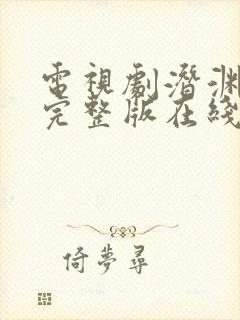 電視劇潛淵
完整版在綫
倚夢尋